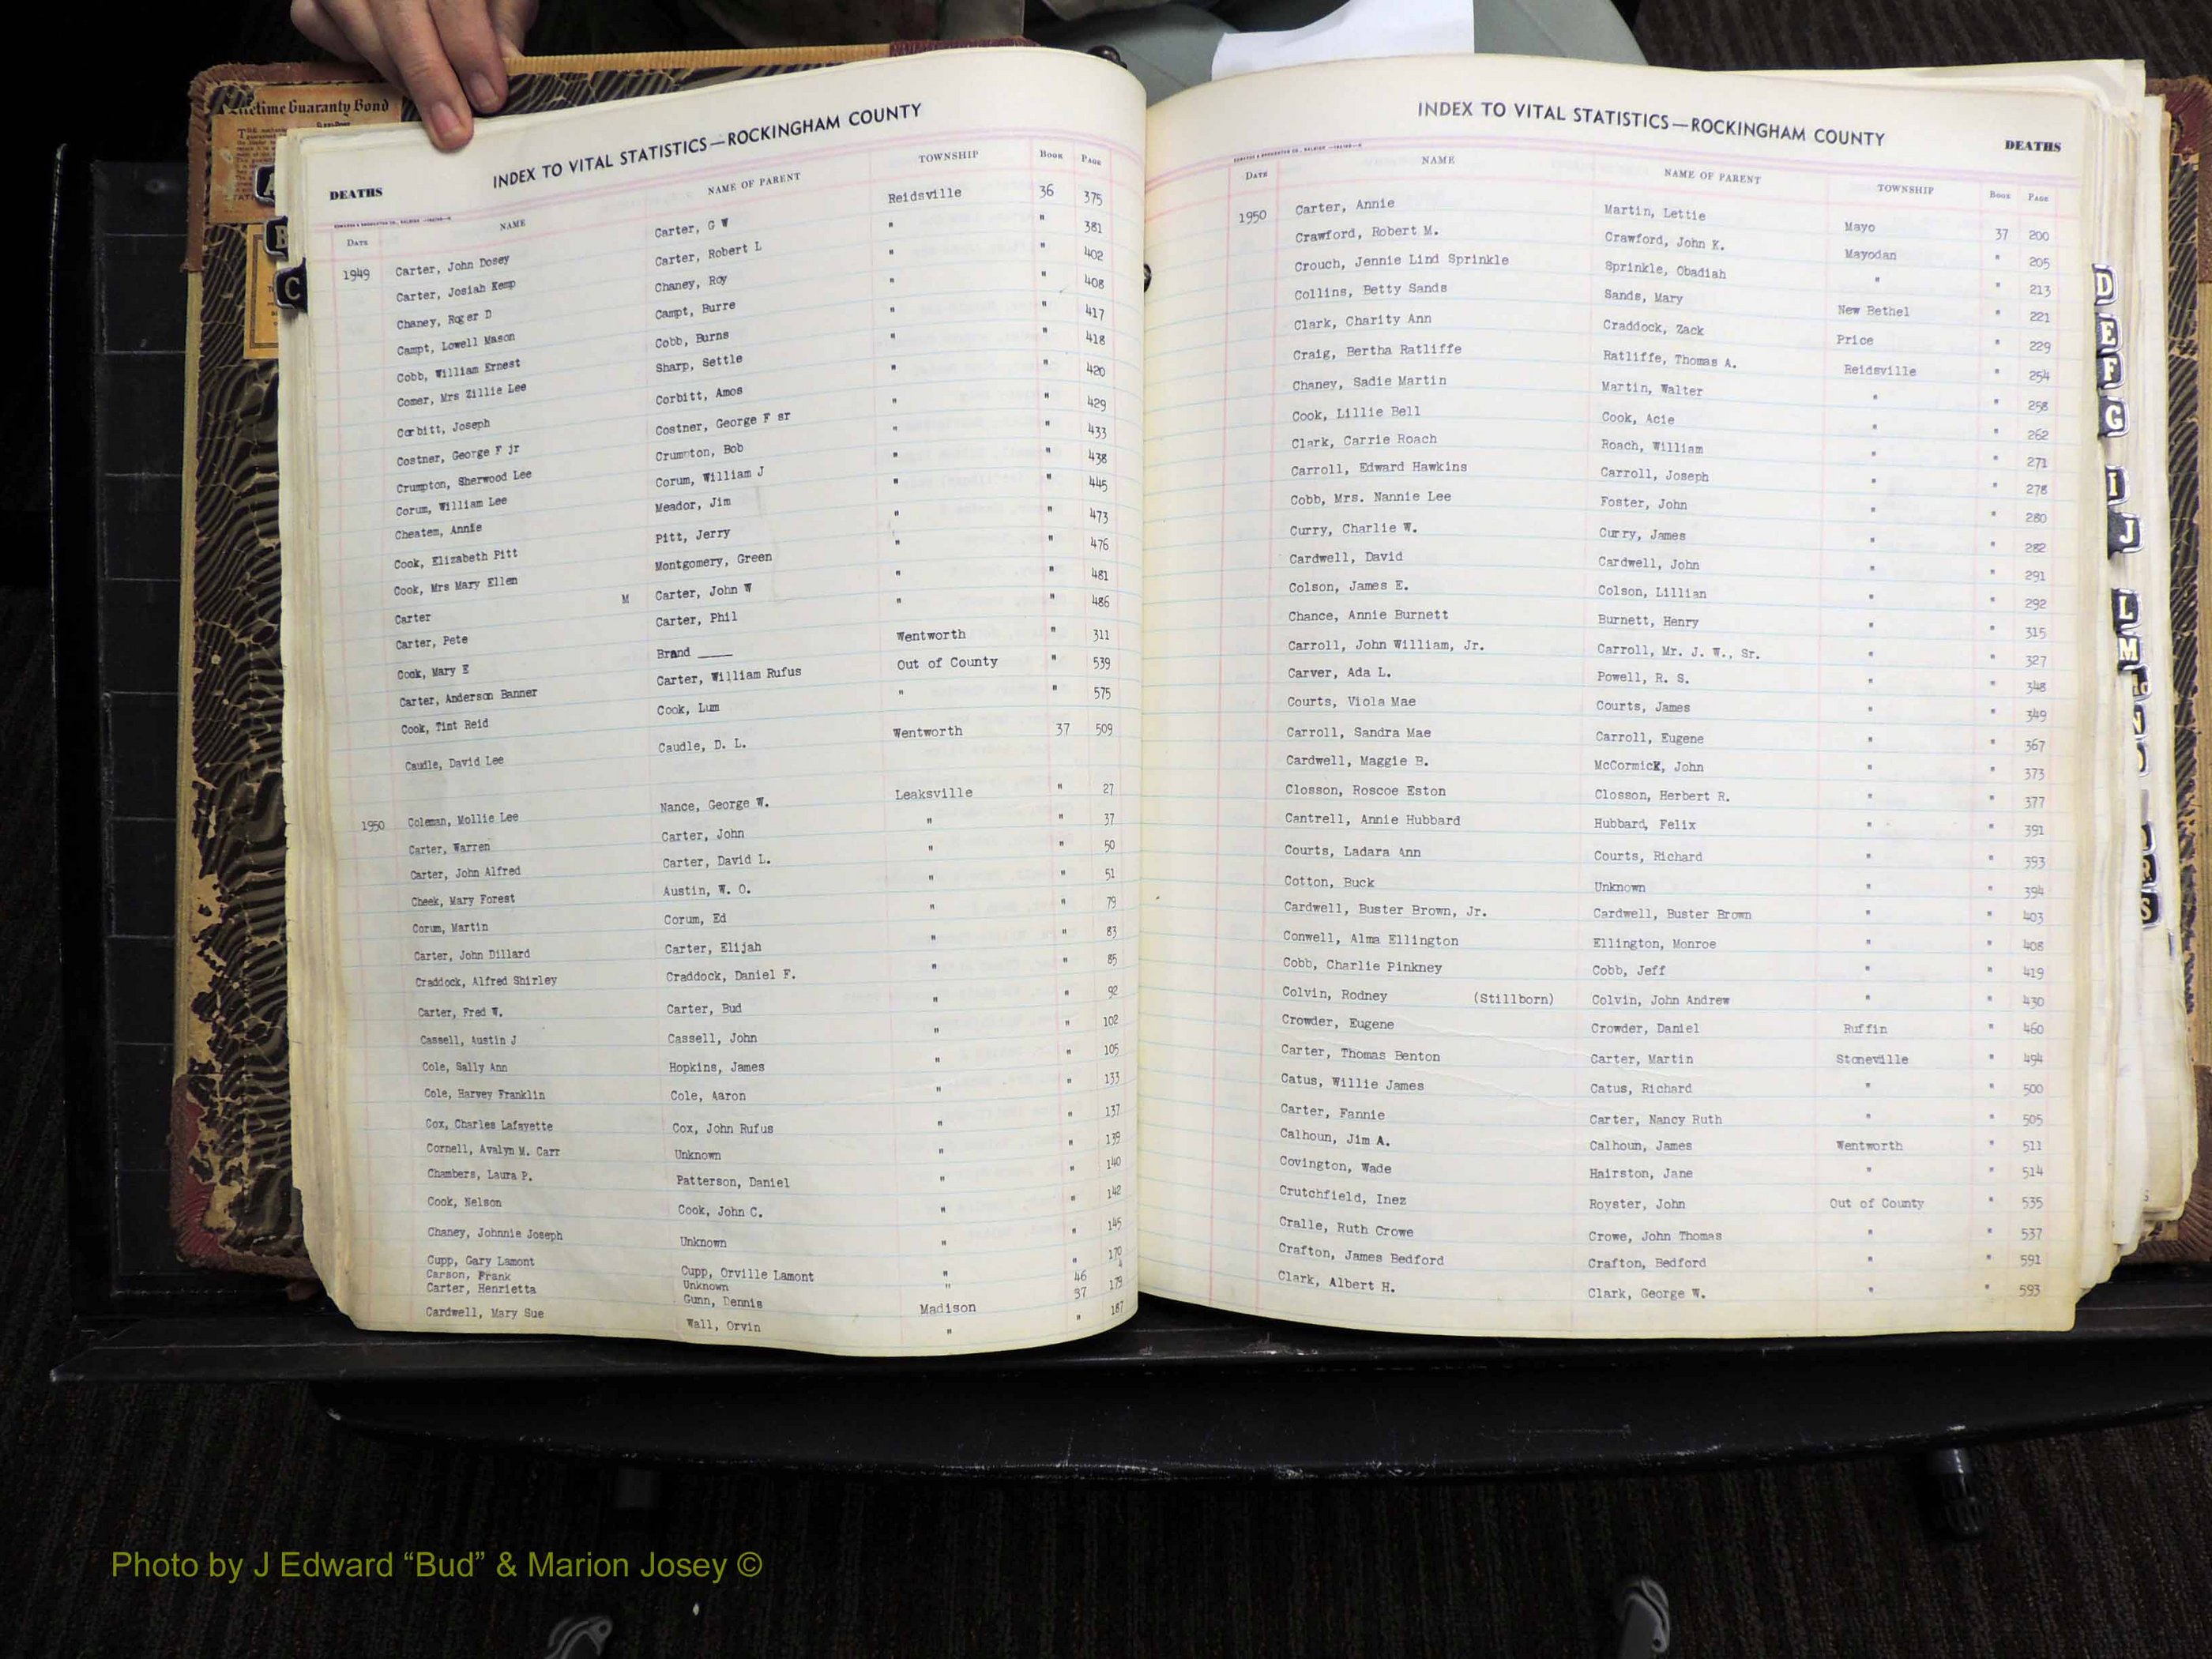 Lifetime Guaranty Bond
INDEX TO VITAL STATISTICS—ROCKINGHAM COUNTY
DEATHS
DATE NAME NAME OF PARENT TOWNSHIP BOOK PAGE
1949 Carter, John Dosey Carter, G W Reidsville 36 375
Carter, Josiah Kemp Carter, Robert L " " 381
Chaney, Roger D Chaney, Roy " " 402
Campt, Lowell Mason Campt, Burre " " 408
Cobb, William Ernest Cobb, Burns " " 417
Comer, Mrs Zillie Lee Sharp, Settle " " 418
Corbitt, Joseph Corbitt, Amos " " 420
Costner, George F jr Costner, George F sr " " 429
Crumpton, Sherwood Lee Crumpton, Bob " " 433
Corum, William Lee Corum, William J " " 438
Cheatem, Annie Meador, Jim " " 445
Cook, Elizabeth Pitt Pitt, Jerry " " 473
Cook, Mrs Mary Ellen Montgomery, Green " " 476
Carter M Carter, John W " " 481
Carter, Pete Carter, Phil " " 486
Cook, Mary E Brand ____ Wentworth " 311
Carter, Anderson Banner Carter, William Rufus Out of County " 539
Cook, Tint Reid Cook, Lum " " 575
Caudle, David Lee Caudle, D. L. Wentworth 37 509
1950 Coleman, Mollie Lee Nance, George W. Leaksville " 27
Carter, Warren Carter, John " " 37
Carter, John Alfred Carter, David L. " " 50
Cheek, Mary Forest Austin, W. O. " " 51
Corum, Martin Corum, Ed " " 79
Carter, John Dillard Carter, Elijah " " 83
Craddock, Alfred Shirley Craddock, Daniel F. " " 85
Carter, Fred W. Carter, Bud " " 92
Cassell, Austin J Cassell, John " " 102
Cole, Sally Ann Hopkins, James " " 105
Cole, Harvey Franklin Cole, Aaron " " 133
Cox, Charles Lafayette Cox, John Rufus " " 137
Cornell, Avalyn M. Carr Unknown " " 139
Chambers, Laura P. Patterson, Daniel " " 140
Cook, Nelson Cook, John C. " " 142
Chaney, Johnnie Joseph Unknown " " 145
Cupp, Gary Lamont Cupp, Orville Lamont " " 170
Carson, Frank Unknown " 46 4
Carter, Henrietta Gunn, Dennis Madison 37 179
Cardwell, Mary Sue Wall, Orvin " " 187
INDEX TO VITAL STATISTICS—ROCKINGHAM COUNTY
DEATHS
DATE NAME NAME OF PARENT TOWNSHIP BOOK PAGE
1950 Carter, Annie Martin, Lettie Mayo 37 200
Crawford, Robert M. Crawford, John K. Mayodan " 205
Crouch, Jennie Lind Sprinkle Sprinkle, Obadiah " " 213
Collins, Betty Sands Sands, Mary New Bethel " 221
Clark, Charity Ann Craddock, Zack Price " 229
Craig, Bertha Ratliffe Ratliffe, Thomas A. Reidsville " 254
Chaney, Sadie Martin Martin, Walter " " 258
Cook, Lillie Bell Cook, Acie " " 262
Clark, Carrie Roach Roach, William " " 271
Carroll, Edward Hawkins Carroll, Joseph " " 278
Cobb, Mrs. Nannie Lee Foster, John " " 280
Curry, Charlie W. Curry, James " " 282
Cardwell, David Cardwell, John " " 291
Colson, James E. Colson, Lillian " " 292
Chance, Annie Burnett Burnett, Henry " " 315
Carroll, John William, Jr. Carroll, Mr. J. W., Sr. " " 327
Carver, Ada L. Powell, R. S. " " 348
Courts, Viola Mae Courts, James " " 349
Carroll, Sandra Mae Carroll, Eugene " " 367
Cardwell, Maggie B. McCormick, John " " 373
Closson, Roscoe Eston Closson, Herbert R. " " 377
Cantrell, Annie Hubbard Hubbard, Felix " " 391
Courts, Ladara Ann Courts, Richard " " 393
Cotton, Buck Unknown " " 394
Cardwell, Buster Brown, Jr. Cardwell, Buster Brown " " 403
Conwell, Alma Ellington Ellington, Monroe " " 408
Cobb, Charlie Pinkney Cobb, Jeff " " 419
Colvin, Rodney (Stillborn) Colvin, John Andrew " " 430
Crowder, Eugene Crowder, Daniel Ruffin " 460
Carter, Thomas Benton Carter, Martin Stoneville " 494
Catus, Willie James Catus, Richard " " 500
Carter, Fannie Carter, Nancy Ruth " " 505
Calhoun, Jim A. Calhoun, James Wentworth " 511
Covington, Wade Hairston, Jane " " 514
Crutchfield, Inez Royster, John Out of County " 535
Cralle, Ruth Crowe Crowe, John Thomas " " 537
Crafton, James Bedford Crafton, Bedford " " 591
Clark, Albert H. Clark, George W. " " 593
A
B
C
D
E
F
G
I
J
L
M
N
R
S
Photo by J Edward “Bud” & Marion Josey ©